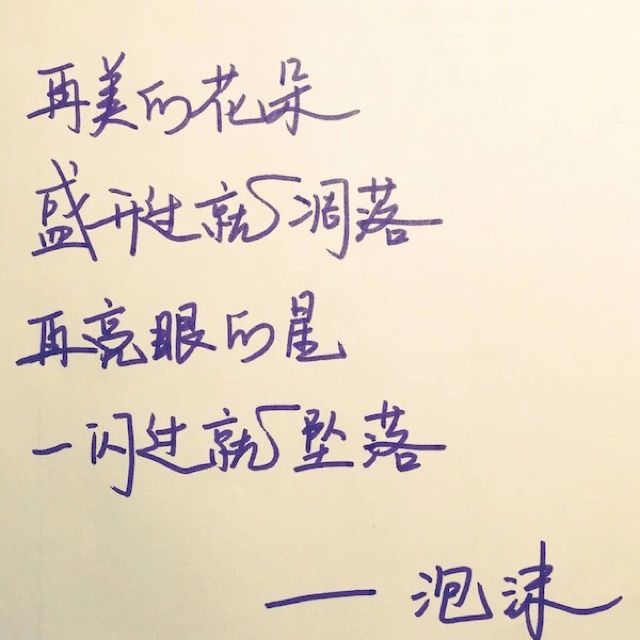 再美的花朵
盛开过就凋落
再亮眼的星
一闪过就坠落
——泡沫